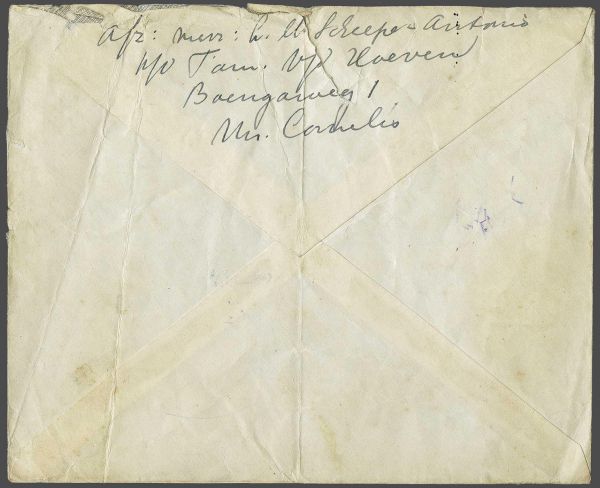 Afz: mevr: L. M. Scheeper-Antonis
p/o Fam. v/d Hoeven
Boengaweg 1
Mr. Cornelis